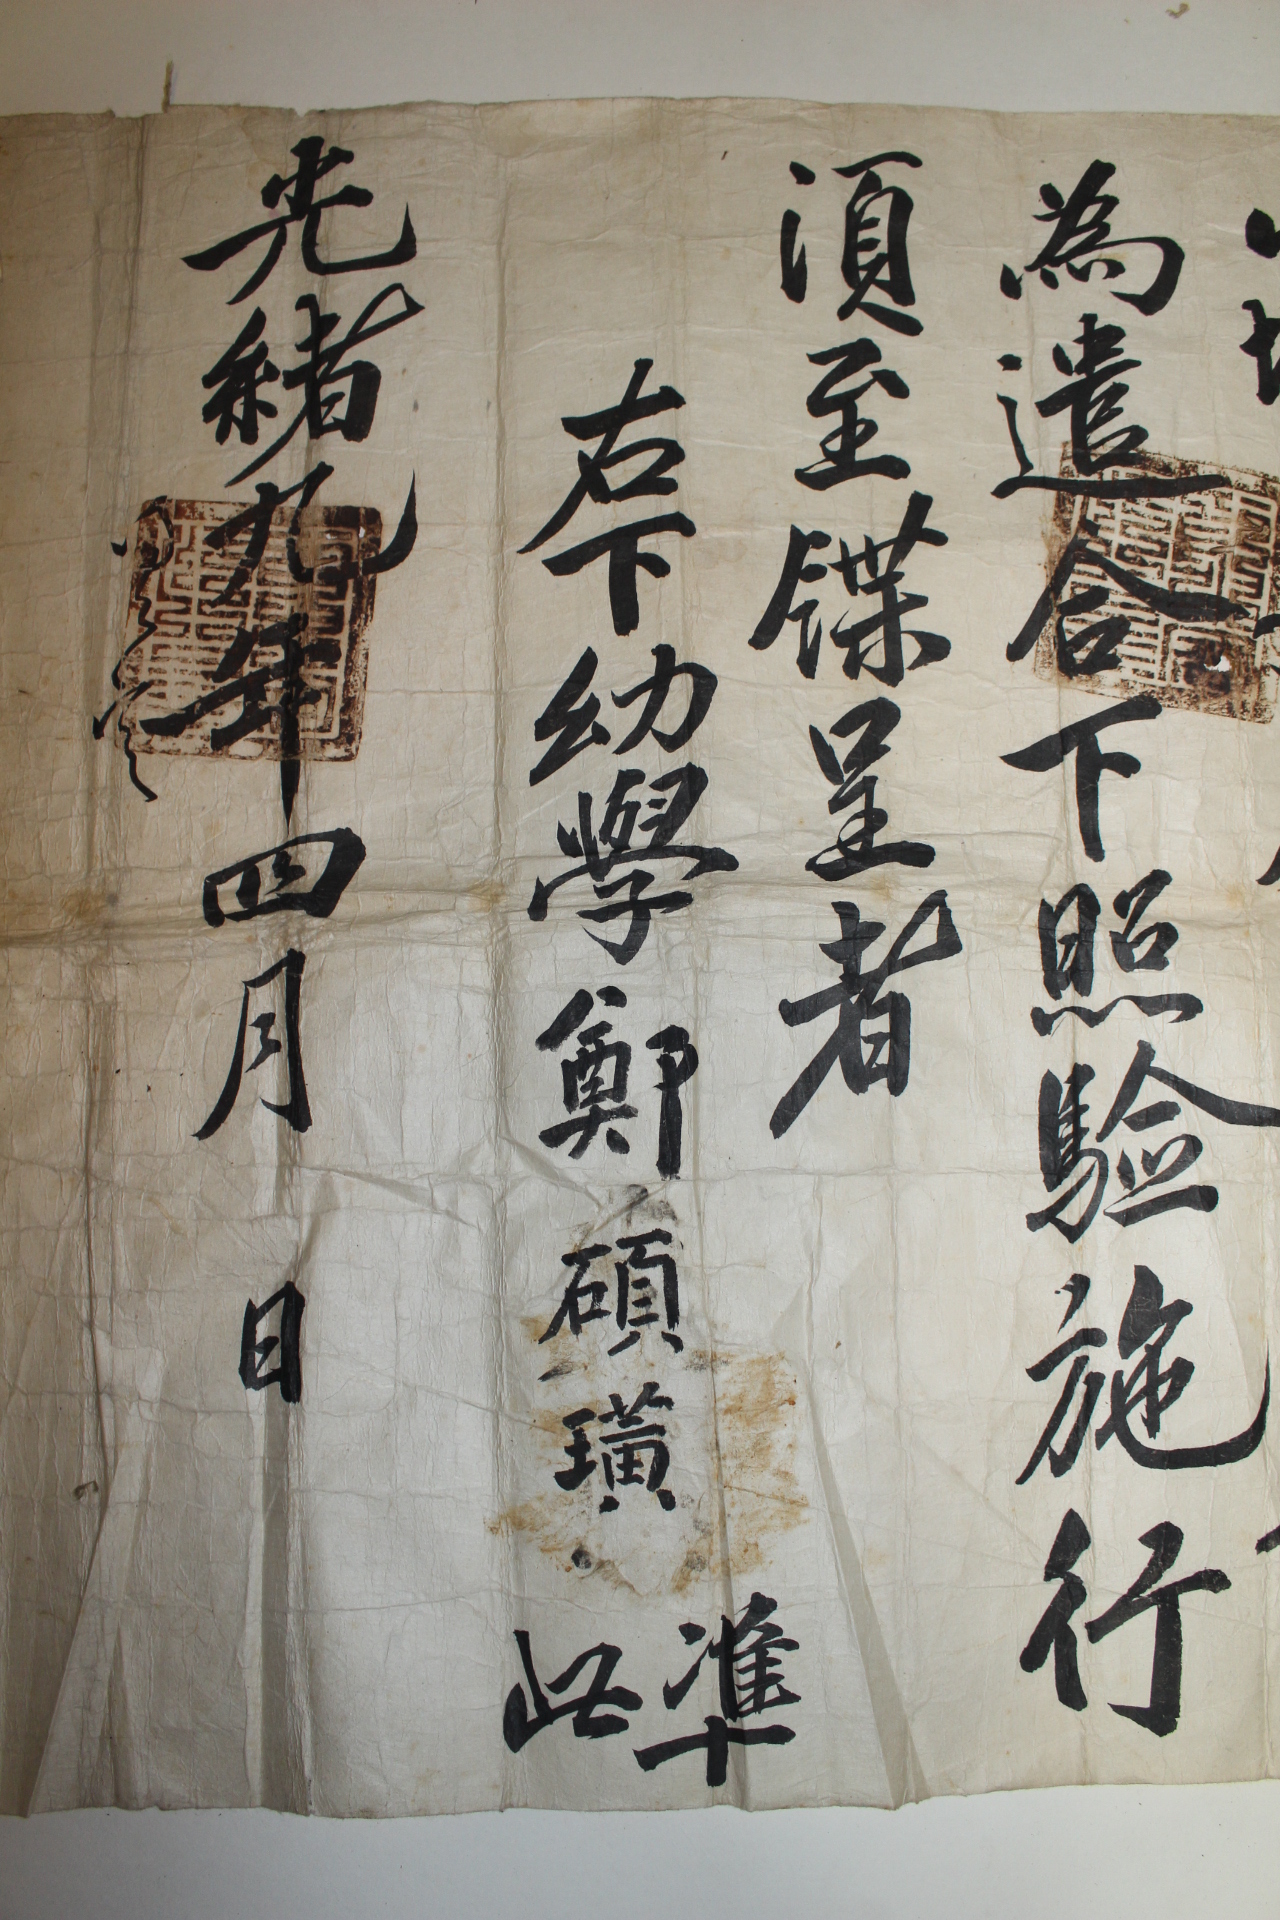 為遣合下照驗施行
須至牒呈者
右下幼學鄭碩璜 準此
光緒九年四月 日